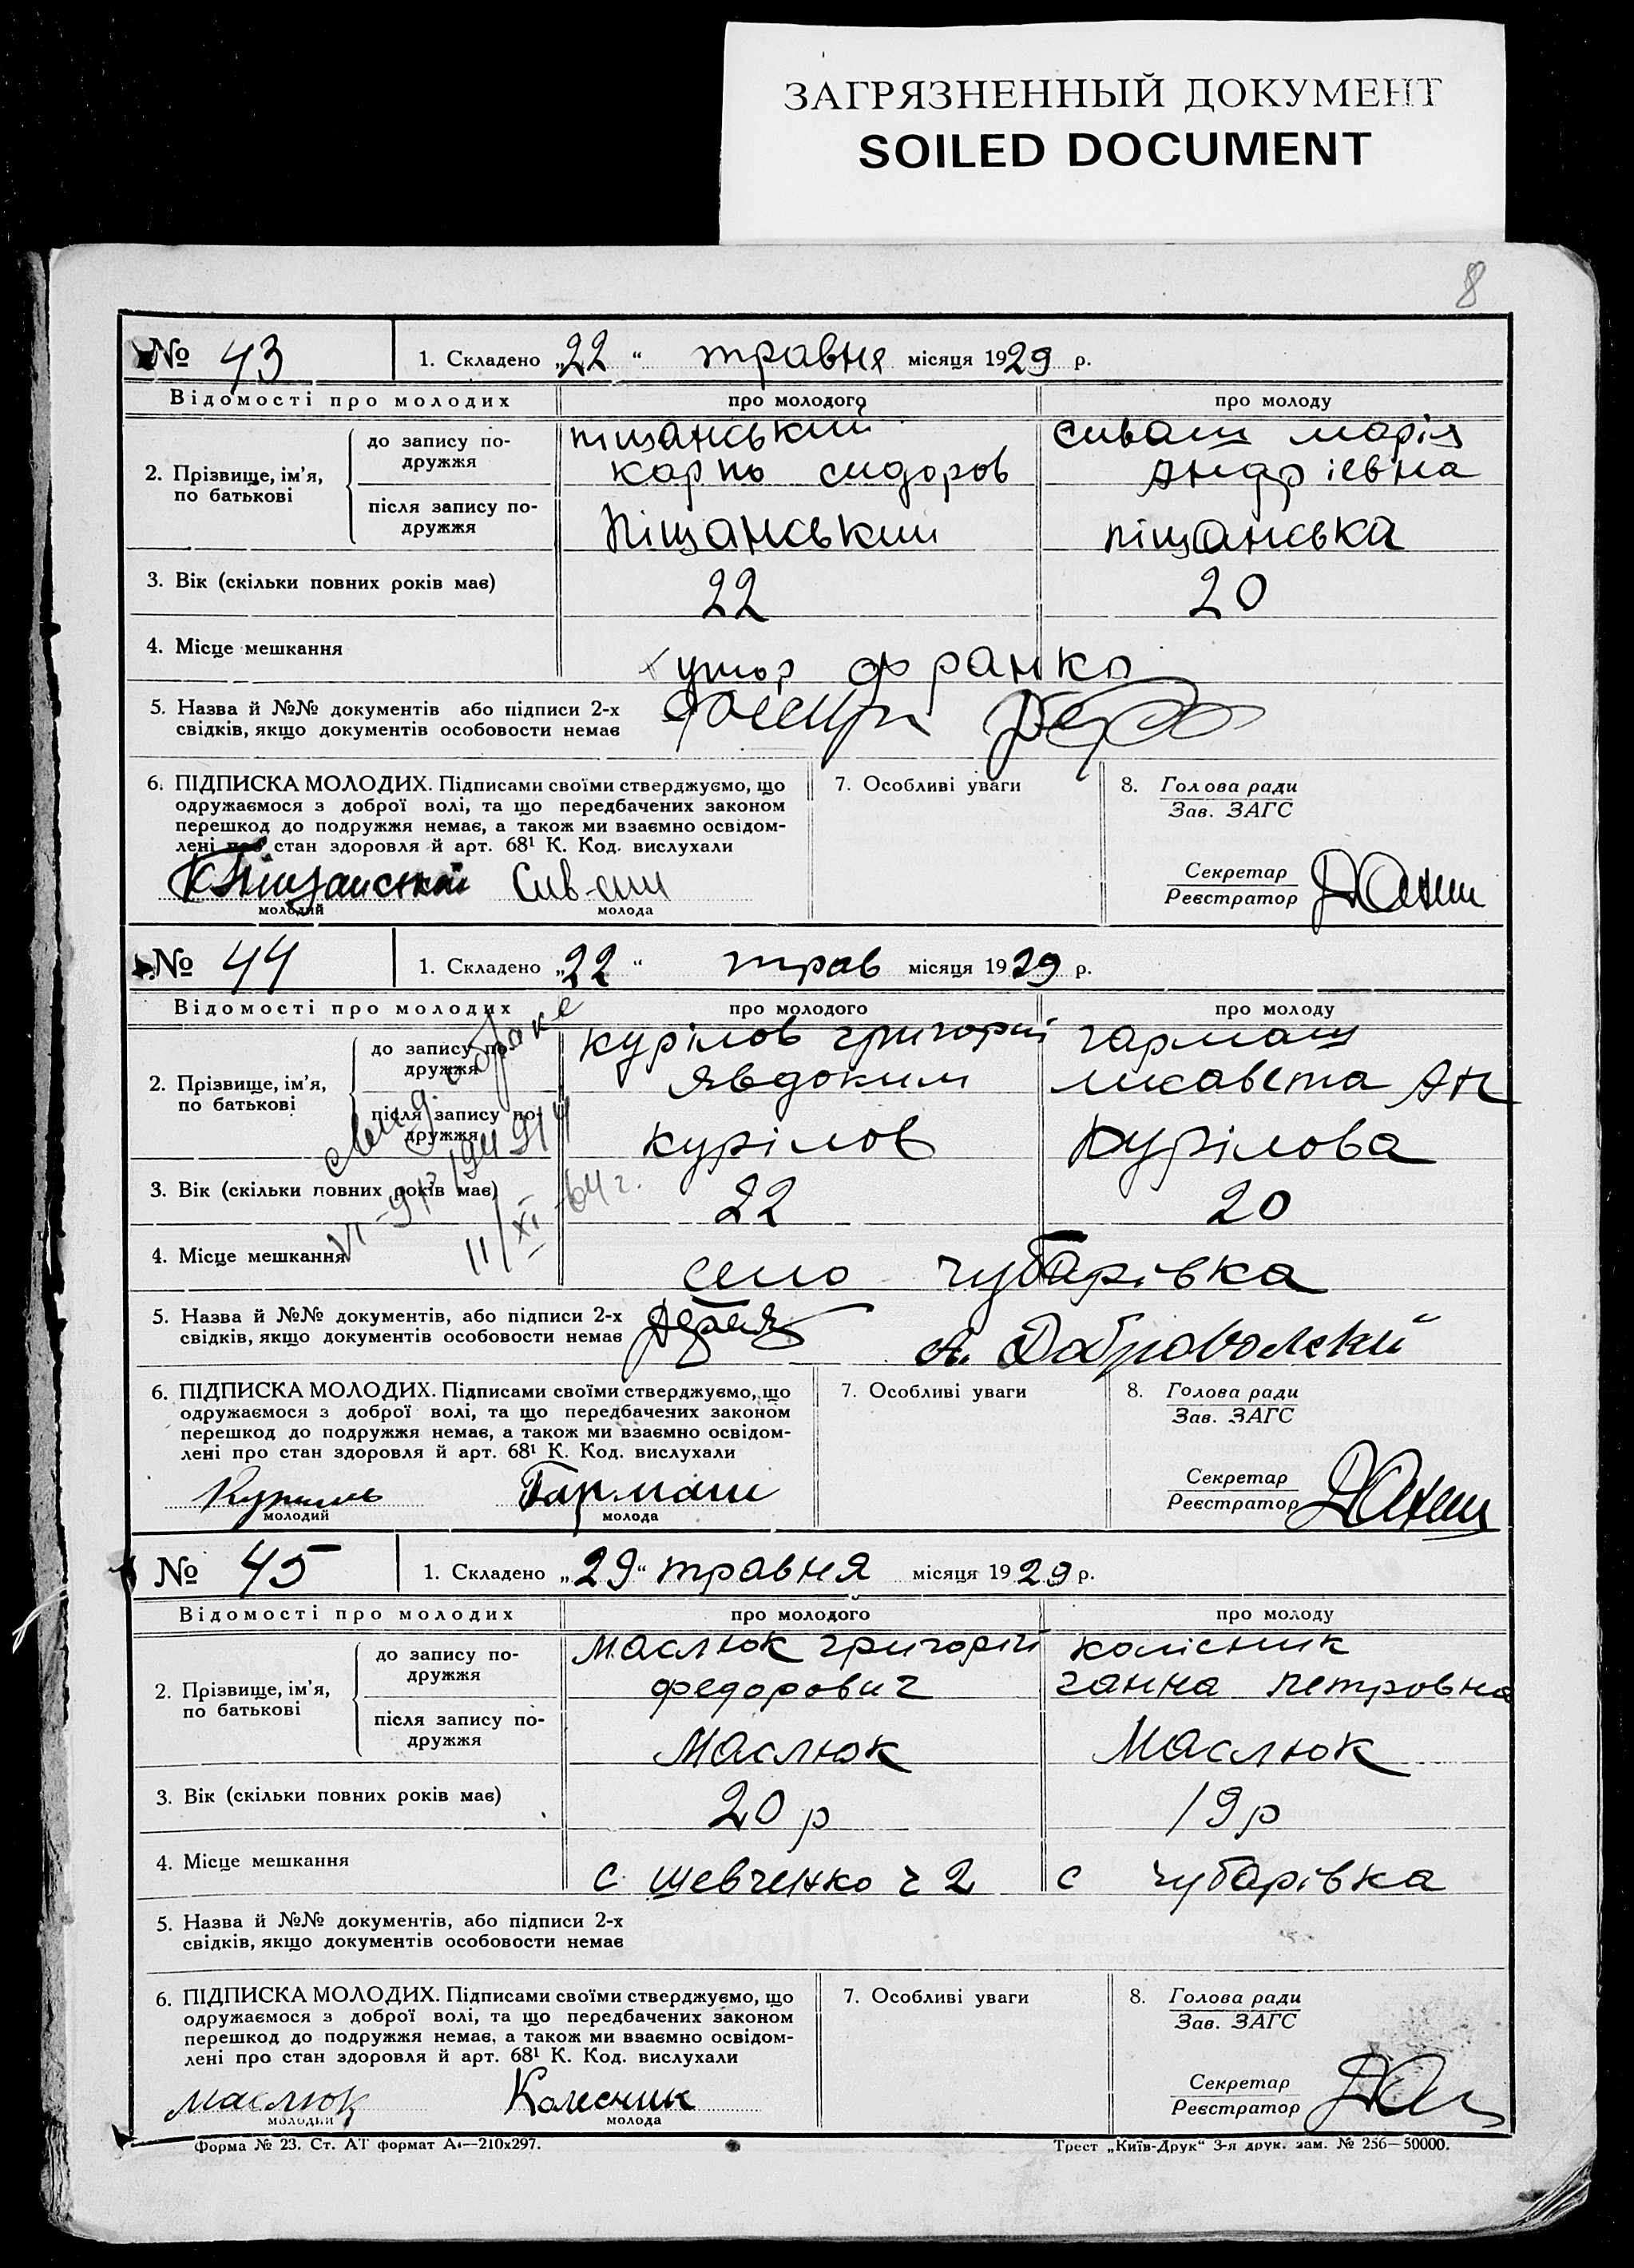 ЗАГРЯЗНЕННЫЙ ДОКУМЕНТ
SOILED DOCUMENT
8
№ 43
1. Складено „22“ травня місяця 1929 р.
Відомості про молодих
про молодого
про молоду
2. Прізвище, ім'я, по батькові
до запису по-
дружжя
піщанський
карпо сидоров
сиваш марія
Андрієвна
після запису по-
дружжя
Піщанський
піщанська
3. Вік (скільки повних років має)
22
20
4. Місце мешкання
хутор франко
5. Назва й №№ документів або підписи 2-х
свідків, якщо документів особовости немає
6. ПІДПИСКА МОЛОДИХ. Підписами своїми стверджуємо, що
одружаємося з доброї волі, та що передбачених законом
перешкод до подружжя немає, а також ми взаємно освідом-
лені про стан здоровля й арт. 68¹ К. Код. вислухали
молодий
молода
7. Особливі уваги
8. Голова ради
Зав. ЗАГС
Секретар
Реєстратор
№ 44
1. Складено „22“ трав місяця 1929 р.
Відомості про молодих
про молодого
про молоду
2. Прізвище, ім'я,
по батькові
до запису по-
дружжя
курілов григорий
явдоким
гармаш
лисавета Ан
після запису по-
дружжя
курілов
Курілова
3. Вік (скільки повних років має)
22
20
11/XI-64 г.
4. Місце мешкання
село чубарівка
5. Назва й №№ документів, або підписи 2-х
свідків, якщо документів особовости немає
А. Добровольский
6. ПІДПИСКА МОЛОДИХ. Підписами своїми стверджуємо, що
одружаємося з доброї волі, та що передбачених законом
перешкод до подружжя немає, а також ми взаємно освідом-
лені про стан здоровля й арт. 68¹ К. Код. вислухали
Гармаш
молодий
молода
7. Особливі уваги
8. Голова ради
Зав. ЗАГС
Секретар
Реєстратор
№ 45
1. Складено „29“ травня місяця 1929 р.
Відомості про молодих
про молодого
про молоду
2. Прізвище, ім'я,
по батькові
до запису по-
дружжя
Маслюк григорій
федорович
колісник
ганна петровна
після запису по-
дружжя
Маслюк
Маслюк
3. Вік (скільки повних років має)
20 р
19 р
4. Місце мешкання
с шевченко ч 2
с чубарівка
5. Назва й №№ документів, або підписи 2-х
свідків, якщо документів особовости немає
6. ПІДПИСКА МОЛОДИХ. Підписами своїми стверджуємо, що
одружаємося з доброї волі, та що передбачених законом
перешкод до подружжя немає, а також ми взаємно освідом-
лені про стан здоровля й арт. 68¹ К. Код. вислухали
маслюк
Колесник
молодий
молода
7. Особливі уваги
8. Голова ради
Зав. ЗАГС
Секретар
Реєстратор
Форма № 23. Ст. АТ формат А₄—210х297.
Трест „Київ-Друк“ 3-я друк. зам. № 256—50000.